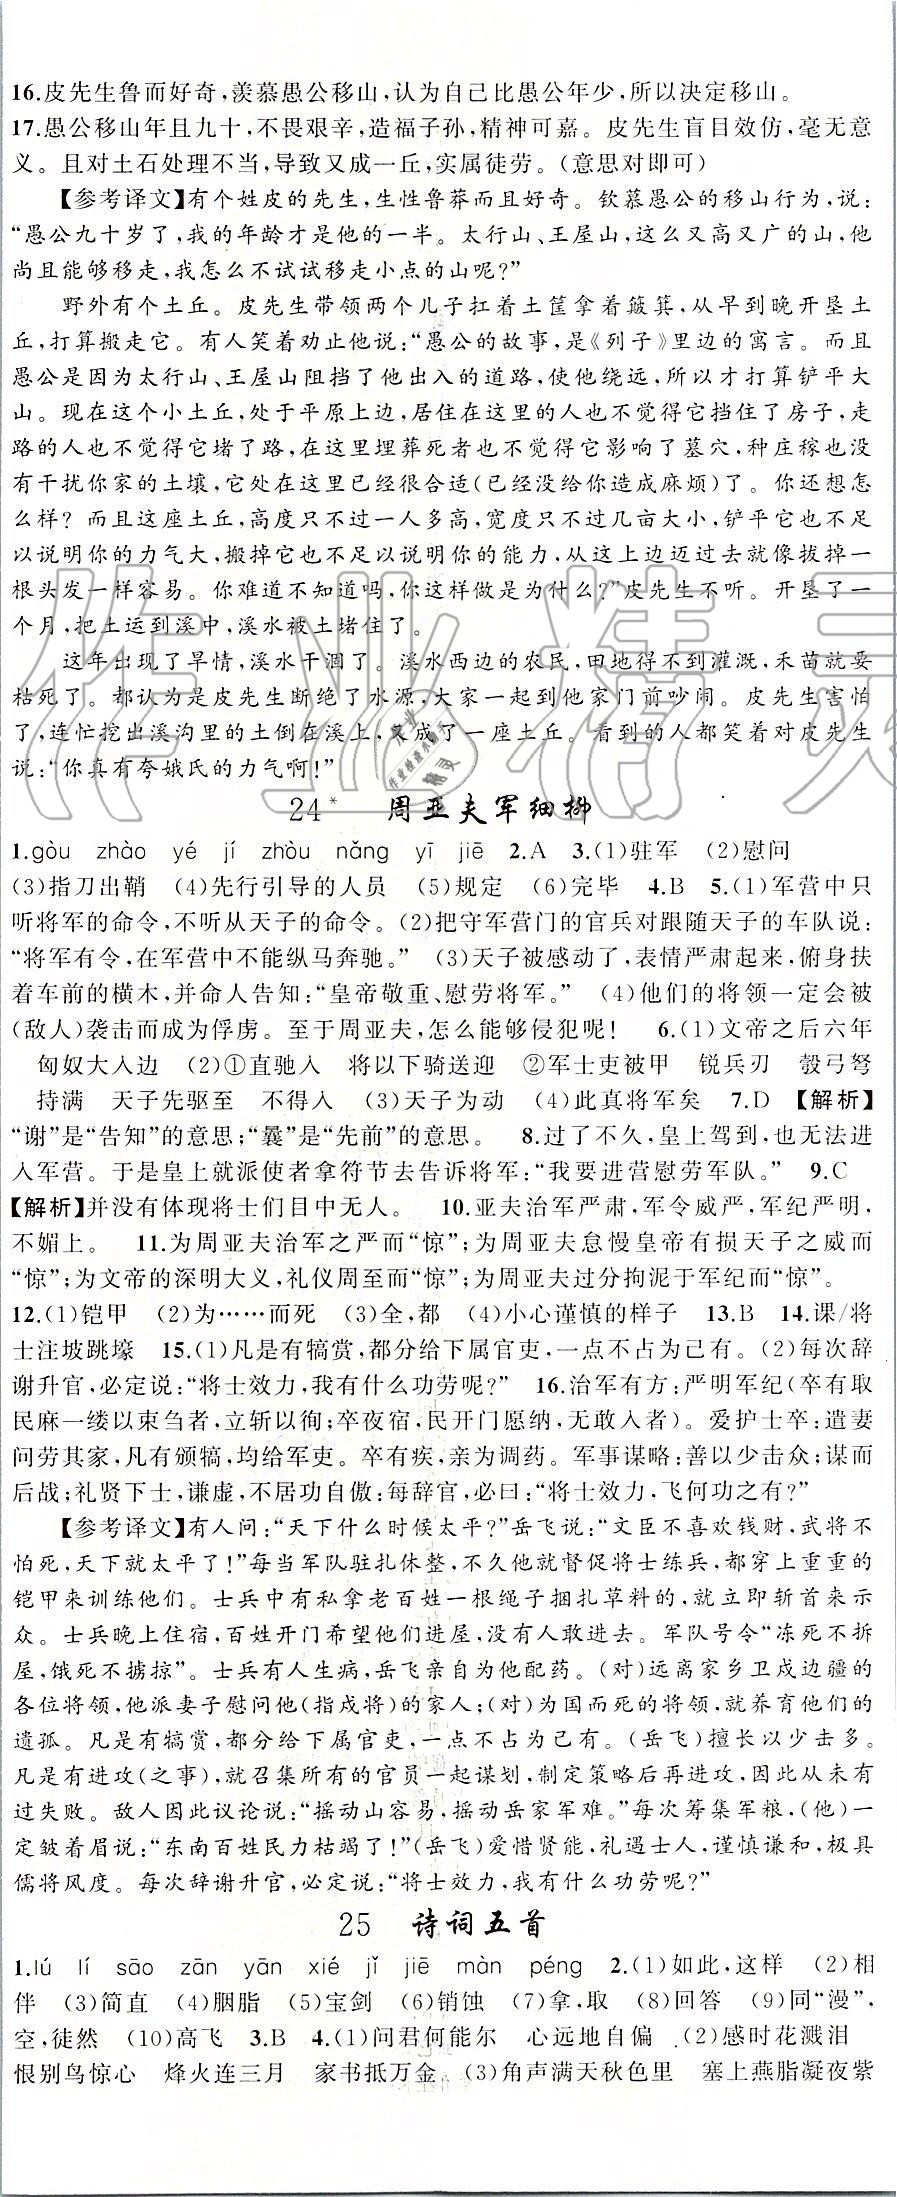 16.皮先生鲁而好奇,羡慕愚公移山,认为自己比愚公年少,所以决定移山。
17.愚公移山年且九十,不畏艰辛,造福子孙,精神可嘉。皮先生盲目效仿,毫无意
义。且对土石处理不当,导致又成一丘,实属徒劳。(意思对即可)
【参考译文】有个姓皮的先生,生性鲁莽而且好奇。钦慕愚公的移山行为,说:
“愚公九十岁了,我的年龄才是他的一半。太行山、王屋山,这么又高又广的山,他
尚且能够移走,我怎么不试试移走小点的山呢?”
野外有个土丘。皮先生带领两个儿子扛着土筐拿着簸箕,从早到晚开垦土
丘,打算搬走它。有人笑着劝止他说:“愚公的故事,是《列子》里边的寓言。而且
愚公是因为太行山、王屋山阻挡了他出入的道路,使他绕远,所以才打算铲平大
山。现在这个小土丘,处于平原上边,居住在这里的人也不觉得它挡住了房子,走
路的人也不觉得它堵了路,在这里埋葬死者也不觉得它影响了墓穴,种庄稼也没
有干扰你家的土壤,它处在这里已经很合适(已经没给你造成麻烦)了。你还想怎
么样?而且这座土丘,高度只不过一人多高,宽度只不过几亩大小,铲平它也不足
以说明你的力气大,搬掉它也不足以说明你的能力,从这上边迈过去就像拔掉一
根头发一样容易。你难道不知道吗,你这样做是为什么?”皮先生不听。开垦了一
个月,把土运到溪中,溪水被土堵住了。
这年出现了旱情,溪水干涸了。溪水西边的农民,田地得不到灌溉,禾苗就要
枯死了。都认为是皮先生断绝了水源,大家一起到他家门前吵闹。皮先生害怕
了,连忙挖出溪沟里的土倒在溪上,又成了一座土丘。看到的人都笑着对皮先生
说:“你真有夸娥氏的力气啊!”
24* 周亚夫军细柳
1.gòu zhào yé jí zhòu nǎng yī jiē 2.A 3.(1)驻军 (2)慰问
(3)指刀出鞘 (4)先行引导的人员 (5)规定 (6)完毕 4.B 5.(1)军营中只
听将军的命令,不听从天子的命令。(2)把守军营门的官兵对跟随天子的车队说:
“将军有令,在军营中不能纵马奔驰。” (3)天子被感动了,表情严肃起来,俯身扶
着车前的横木,并命人告知:“皇帝敬重、慰劳将军。” (4)他们的将领一定会被
(敌人)袭击而成为俘虏。至于周亚夫,怎么能够侵犯呢! 6.(1)文帝之后六年
匈奴大入边 (2)①直驰入 将以下骑送迎 ②军士吏被甲 锐兵刃 彀弓弩
持满 天子先驱至 不得入 (3)天子为动 (4)此真将军矣 7.D 【解析】
“谢”是“告知”的意思;“曩”是“先前”的意思。 8.过了不久,皇上驾到,也无法进
入军营。于是皇上就派使者拿符节去告诉将军:“我要进营慰劳军队。” 9.C
【解析】并没有体现将士们目中无人。 10.亚夫治军严肃,军令威严,军纪严明,
不媚上。 11.为周亚夫治军之严而“惊”;为周亚夫怠慢皇帝有损天子之威而
“惊”;为文帝的深明大义,礼仪周至而“惊”;为周亚夫过分拘泥于军纪而“惊”。
12.(1)铠甲 (2)为……而死 (3)全,都 (4)小心谨慎的样子 13.B 14.课/将
士注坡跳壕 15.(1)凡是有犒赏,都分给下属官吏,一点不占为己有。(2)每次辞
谢升官,必定说:“将士效力,我有什么功劳呢?” 16.治军有方:严明军纪(卒有取
民麻一缕以束刍者,立斩以徇;卒夜宿,民开门愿纳,无敢入者)。爱护士卒:遣妻
问劳其家,凡有颁犒,均给军吏。卒有疾,亲为调药。军事谋略:善以少击众;谋而
后战;礼贤下士,谦虚,不居功自傲:每辞官,必曰:“将士效力,飞何功之有?”
【参考译文】有人问:“天下什么时候太平?”岳飞说:“文臣不喜欢钱财,武将不
怕死,天下就太平了!”每当军队驻扎休整,不久他就督促将士练兵,都穿上重重的
铠甲来训练他们。士兵中有私拿老百姓一根绳子捆扎草料的,就立即斩首来示
众。士兵晚上住宿,百姓开门希望他们进屋,没有人敢进去。军队号令“冻死不拆
屋,饿死不掳掠”。士兵有人生病,岳飞亲自为他配药。(对)远离家乡卫戍边疆的
各位将领,他派妻子慰问他(指戍将)的家人;(对)为国而死的将领,就养育他们的
遗孤。凡是有犒赏,都分给下属官吏,一点不占为己有。(岳飞)擅长以少击多。
凡是有进攻(之事),就召集所有的官员一起谋划,制定策略后再进攻,因此从未有
过失败。敌人因此议论说:“摇动山容易,摇动岳家军难。”每次筹集军粮,(他)一
定皱着眉说:“东南百姓民力枯竭了!”(岳飞)爱惜贤能,礼遇士人,谨慎谦和,极具
儒将风度。每次辞谢升官,必定说:“将士效力,我有什么功劳呢?”
25 诗词五首
1.lú lí sāo zān yān xié jǐ jiē màn péng 2.(1)如此,这样 (2)相
伴 (3)简直 (4)胭脂 (5)宝剑 (6)销蚀 (7)拿,取 (8)回答 (9)同“漫”,
空,徒然 (10)高飞 3.B 4.(1)问君何能尔 心远地自偏 (2)感时花溅泪
恨别鸟惊心 烽火连三月 家书抵万金 (3)角声满天秋色里 塞上燕脂凝夜紫
作业精灵